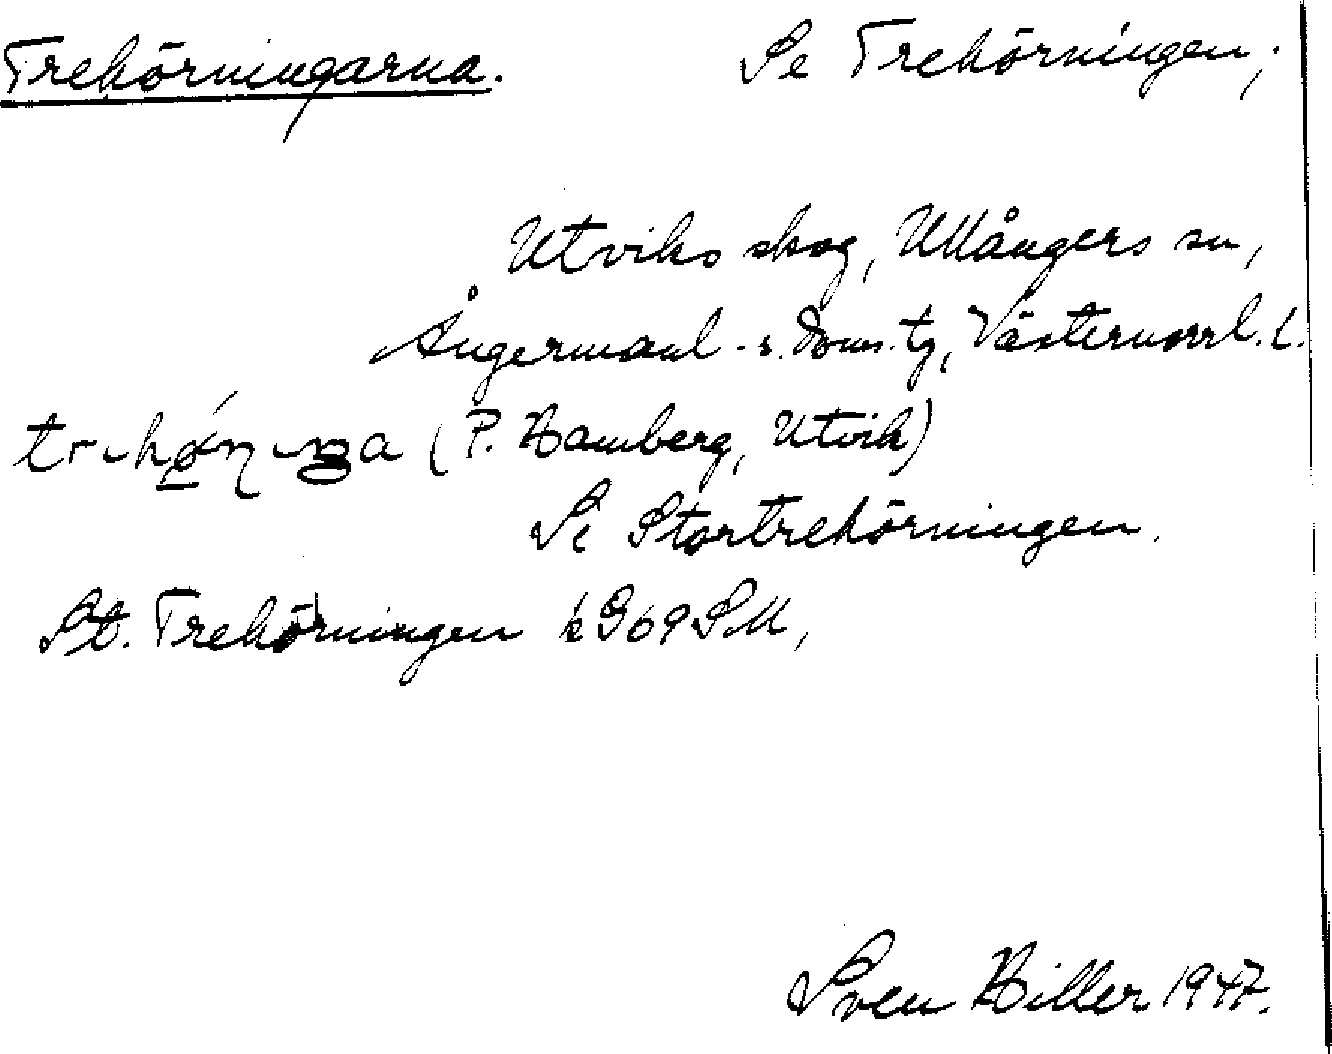 Trehörningarna. Se Trehörningen;
Utviks skog, Ullångers sn,
Ångermanl. s. doms. tg, Västernorrl. l.
(P. Hamberg, Utvik)
Se Stortrehörningen.
St. Trehörningen 969 SM,
Sven Hiller 1947.